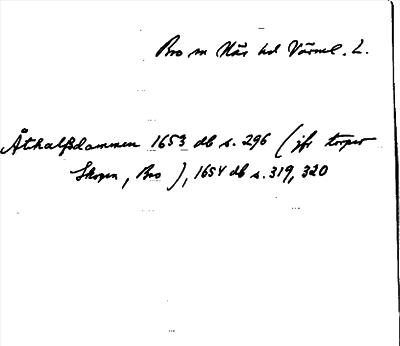 Bro sn Näs hd Värml. L.
Åtkalfsdammen 1653 db s. 296 (jfr torpet
Skogen, Bro), 1654 db s. 319, 320